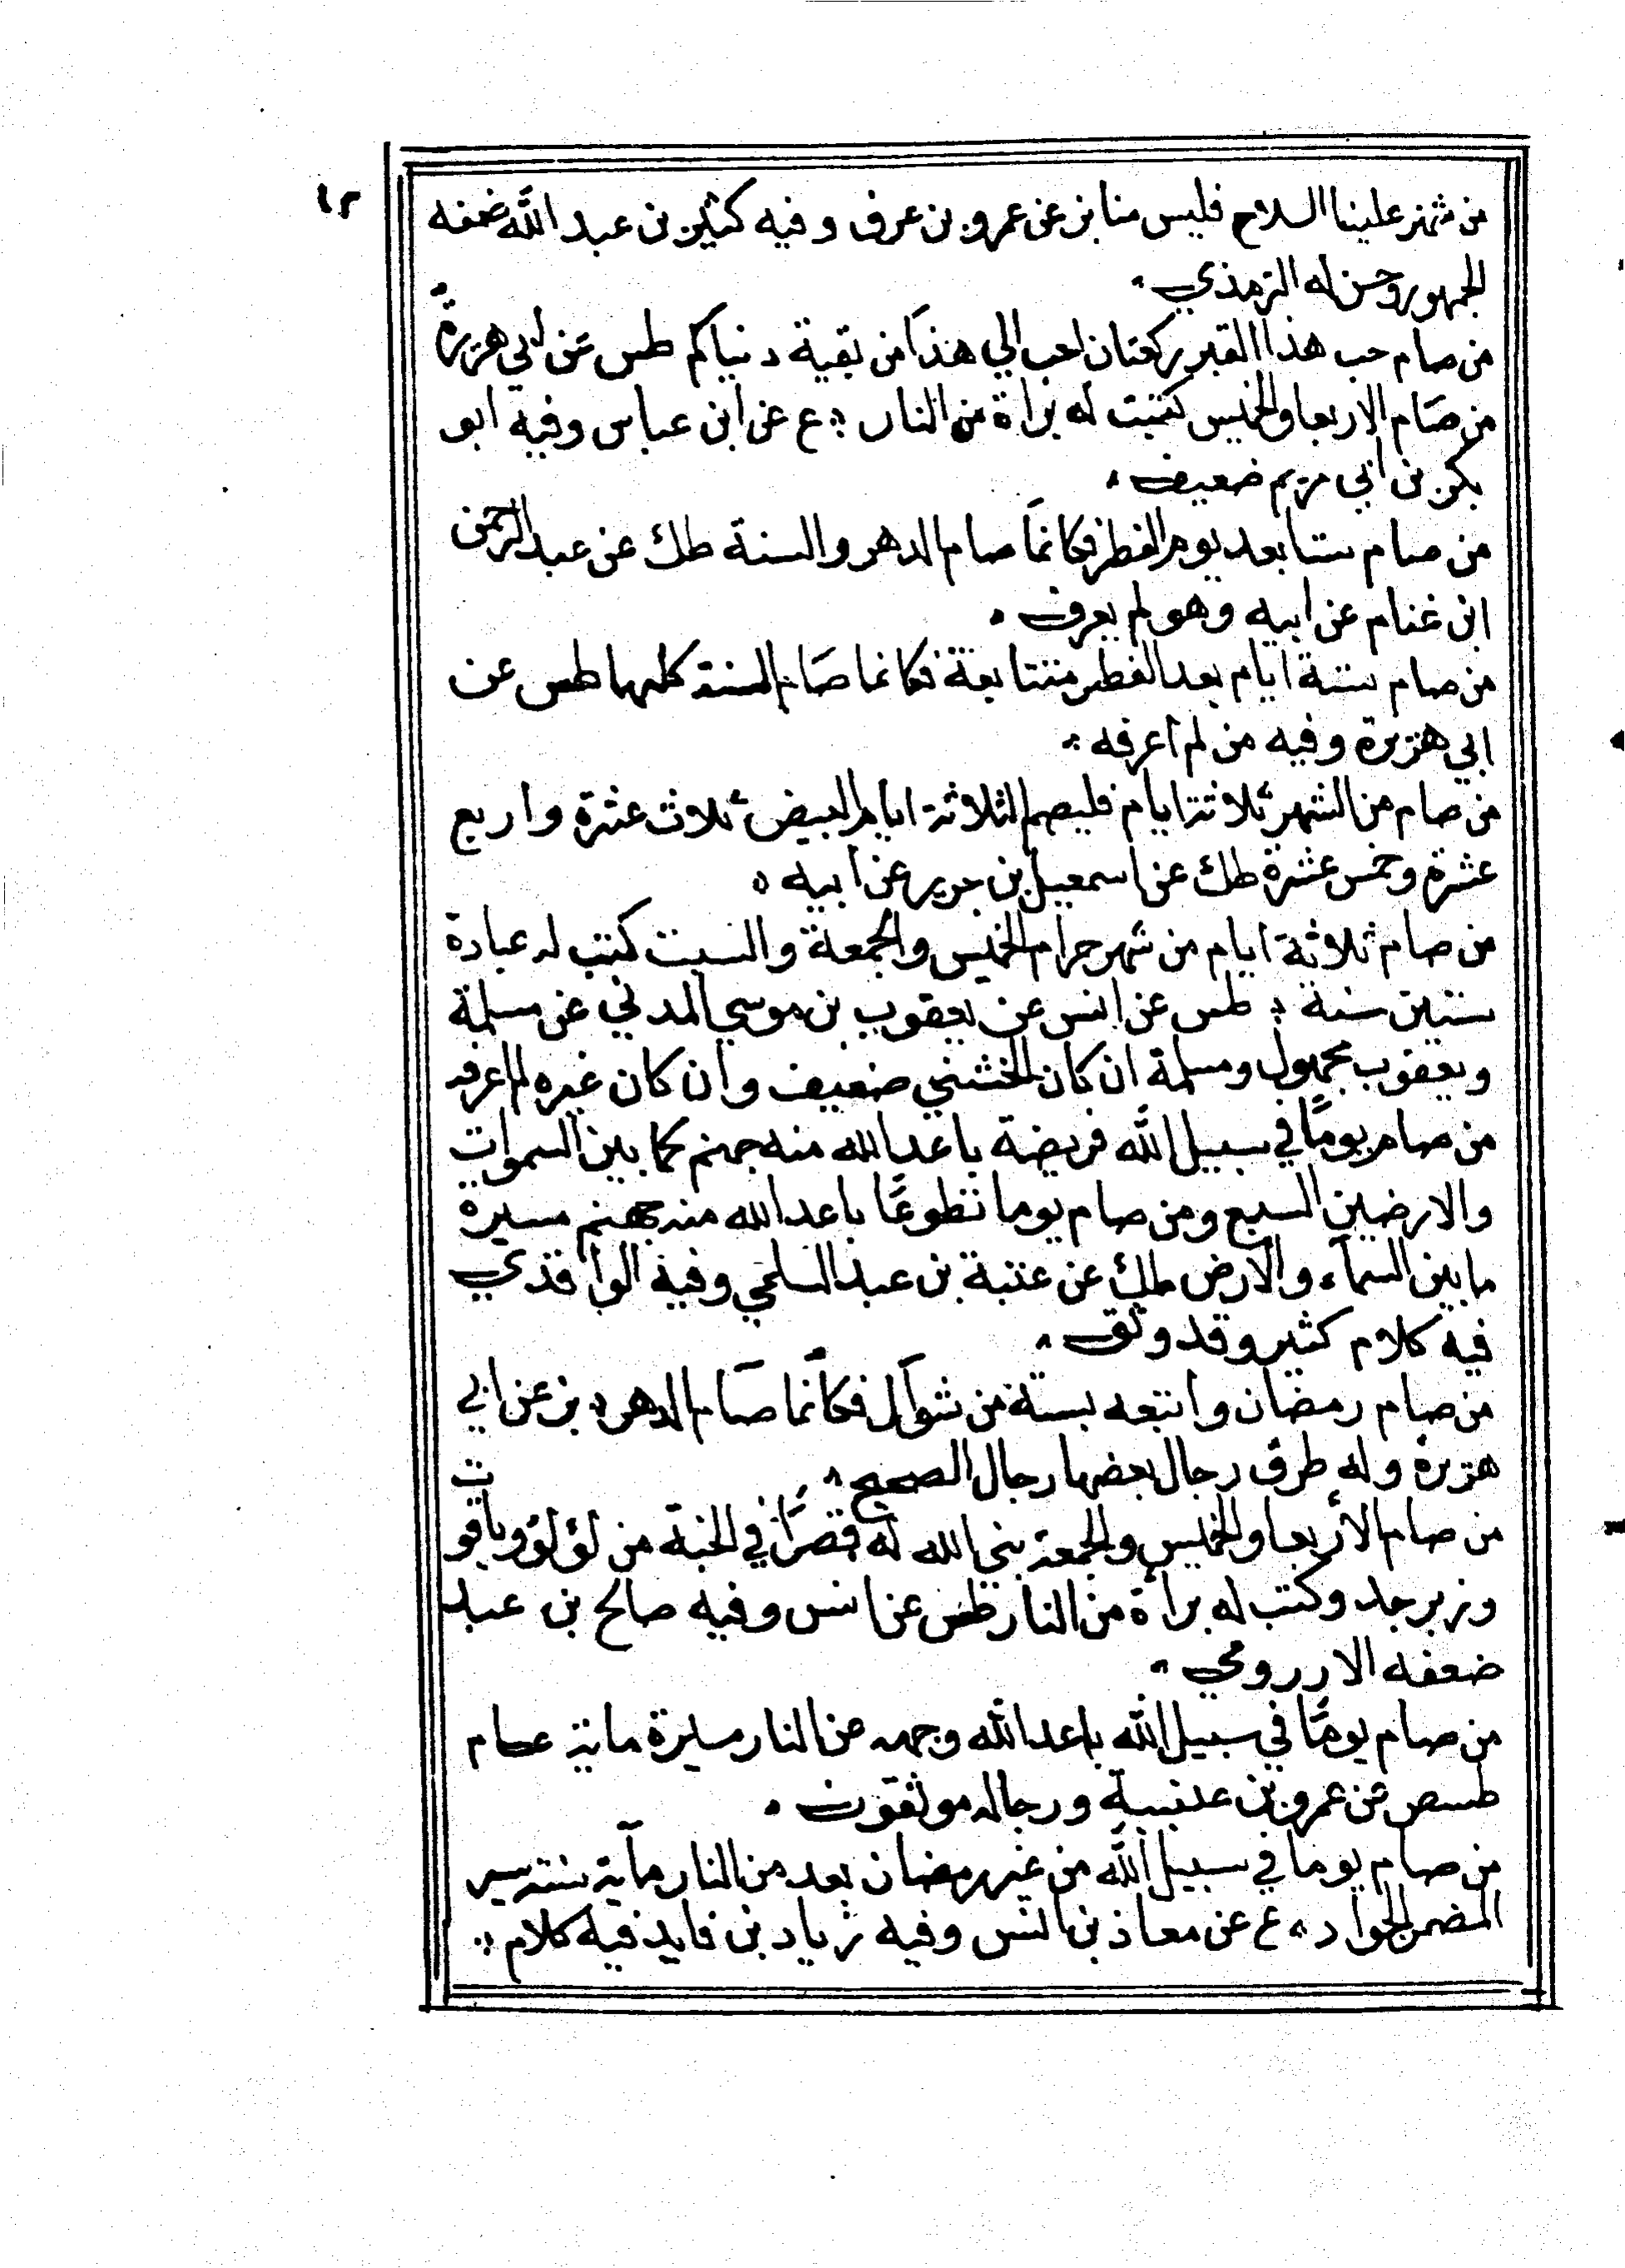 ١٢
من شهر علينا السلاح فليس منا بز عن عمرو بن عوف وفيه كثير بن عبد الله ضعفه
الجمهور وحسن له الترمذي
من صام حب هذا القبر ركعتان احب الي هذا من بقية دنياكم طس عن ابي هريرة
من صام الاربعا والخميس كتبت له براة من النار ع عن ابن عباس وفيه ابو
بكر بن ابي مريم ضعيف
من صام ستا بعد يوم الفطر فكانما صام الدهر والسنة طك عن عبد الرحمن
ابن غنام عن ابيه وهو لم يعرف
من صام ستة ايام بعد الفطر متتابعة فكانما صام السنة كلها طس عن
ابي هريرة وفيه من لم اعرفه
من صام من الشهر ثلاثة ايام فليصم الثلاثة ايام البيض ثلاث عشرة واربع
عشرة وخمس عشرة طك عن اسمعيل بن جرير عن ابيه
من صام ثلاثة ايام من شهر حرام الخميس والجمعة والسبت كتب له عبادة
ستين سنة طس عن انس عن يعقوب بن موسي المدني عن مسلمة
ويعقوب مجهول ومسلمة ان كان الخشني ضعيف وان كان غيره لم اعرفه
من صام يومًا في سبيل الله فريضة باعد الله منه جهنم كما بين السموات
والارضين السبع ومن صام يوما تطوعًا باعد الله منه جهنم مسيرة
ما بين السماء والارض طك عن عتبة بن عبد السلمي وفيه الواقدي
فيه كلام كثير وقد وثق
من صام رمضان واتبعه بستة من شوال فكانما صام الدهر بز عن ابي
هريرة وله طرق رجال بعضها رجال الصحيح
من صام الأربعا والخميس والجمعة بني الله له قصرًا في الجنة من لؤلؤ وياقوت
وزبرجد وكتب له برأة من النار طس عن انس وفيه صالح بن عبد
ضعفه الاررومي
من صام يومًا في سبيل الله باعد الله وجهه من النار مسيرة ماية عام
طسص عن عمرو بن عنبسة ورجاله موثقون
من صام يوما في سبيل الله من غير رمضان بعد من النار ماية سنة سير
المضمر الجواد ع عن معاذ بن انس وفيه زياد بن فايد فيه كلام